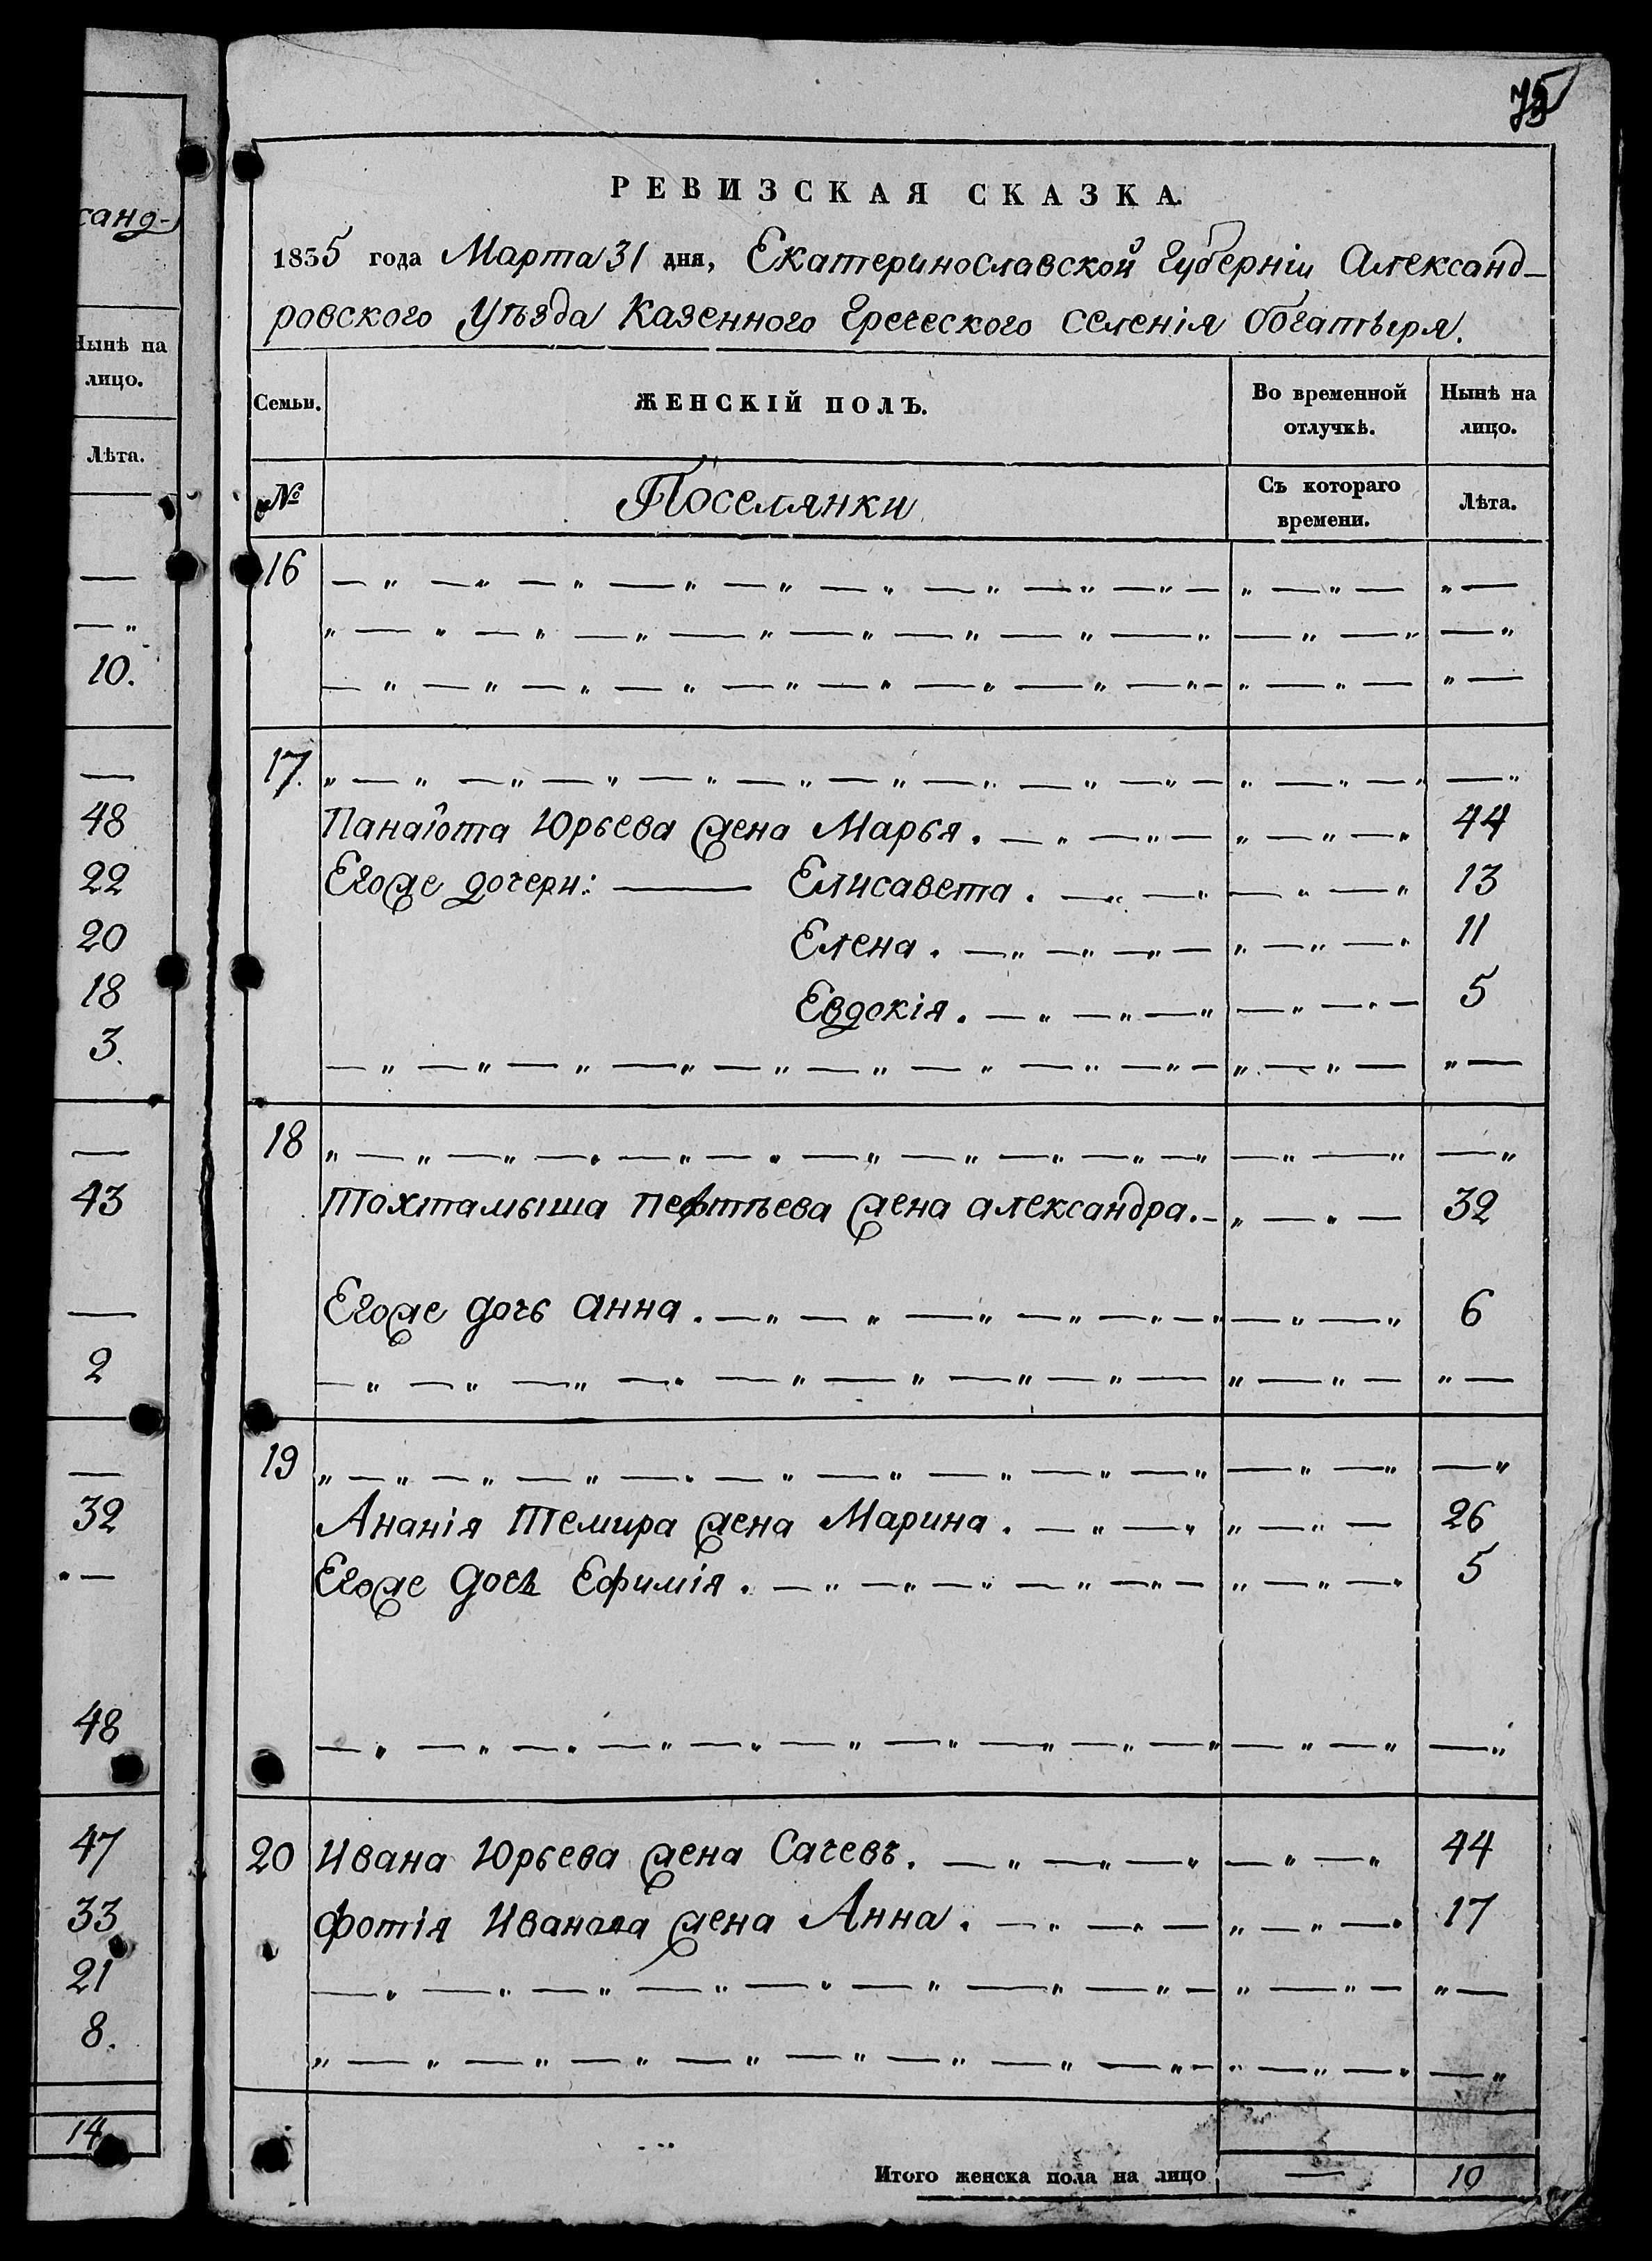 75
санд-
Нынѣ на
лицо.
Лѣта.
10.
48
22
20
18
3.
43
2
32
48
47
33
21
8.
14
РЕВИЗСКАЯ СКАЗКА.
1835 года Марта 31 дня, Екатеринославской Губерніи Александ-
ровского Уѣзда Казенного Греческого селенія Богатыря.
Семьи. ЖЕНСКІЙ ПОЛЪ. Во временной отлучкѣ. Нынѣ на лицо.
№ Поселянки Съ котораго времени. Лѣта.
16
17.
Панаіота Юрьева жена Марья. 44
Егоже дочери: Елисавета. 13
Елена. 11
Евдокія. 5
18
Тохтамыша Пефтѣева жена александра. 32
Егоже дочь анна. 6
19
Ананія Темира жена Марина. 26
Егоже дочь Ефимія. 5
20 Ивана Юрьева жена Сачевъ. 44
Фотія Иванова жена Анна. 17
Итого женска пола на лицо — 10